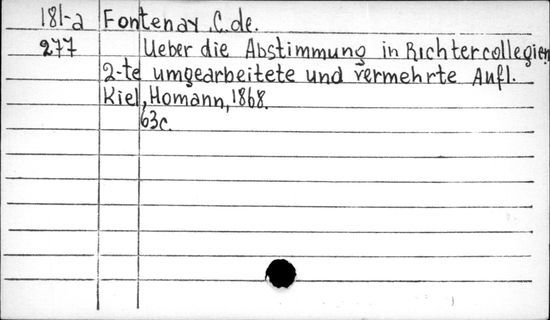 181-a Fontenay, C. de.
277 Ueber die Abstimmung in Richtercollegien
2-te umgearbeitete und vermehrte Aufl.
Kiel, Homann, 1868.
63c.